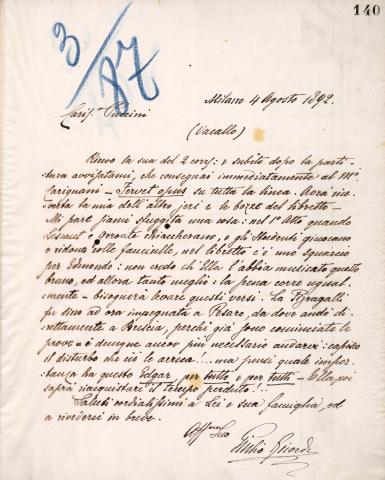 140
3/87
Milano 4 Agosto 1892.
Cariss. Puccini
(Vacallo)
Ricevo la sua del 2 corr. e subito dopo la parti-
tura avvisatami, che consegnai immediatamente al Mo.
Carignani - Fervet opus su tutta la linea. Avrà rice-
vuto la mia dell'altro jeri e le bozze del libretto -
Mi pare siami sfuggita una cosa: nel 1o. Atto quando
Lescaut e Geronte chiacherano, e gli Studenti giuocano
e ridono colle fanciulle, nel libretto c'è uno squarcio
per Edmondo: non credo ch'Ella l'abbia musicato questo
brano, ed allora tanto meglio: la scena corre egual-
mente - bisognerà levare questi versi. La
fu sino ad ora impegnata a Pesaro, da dove andò di-
rettamente a Brescia, perchè già sono cominciate le
prove - è dunque ancor più necessario andarci: capisco
il disturbo che ciò le arreca!... ma pensi quale impor-
tanza ha questo Edgar per tutto e per tutti - Ella poi
saprà riacquistare il tempo perduto!.
Saluti cordialissimi a Lei e sua famiglia, ed
a rivederci in breve.
Aff. Suo
Giulio Ricordi